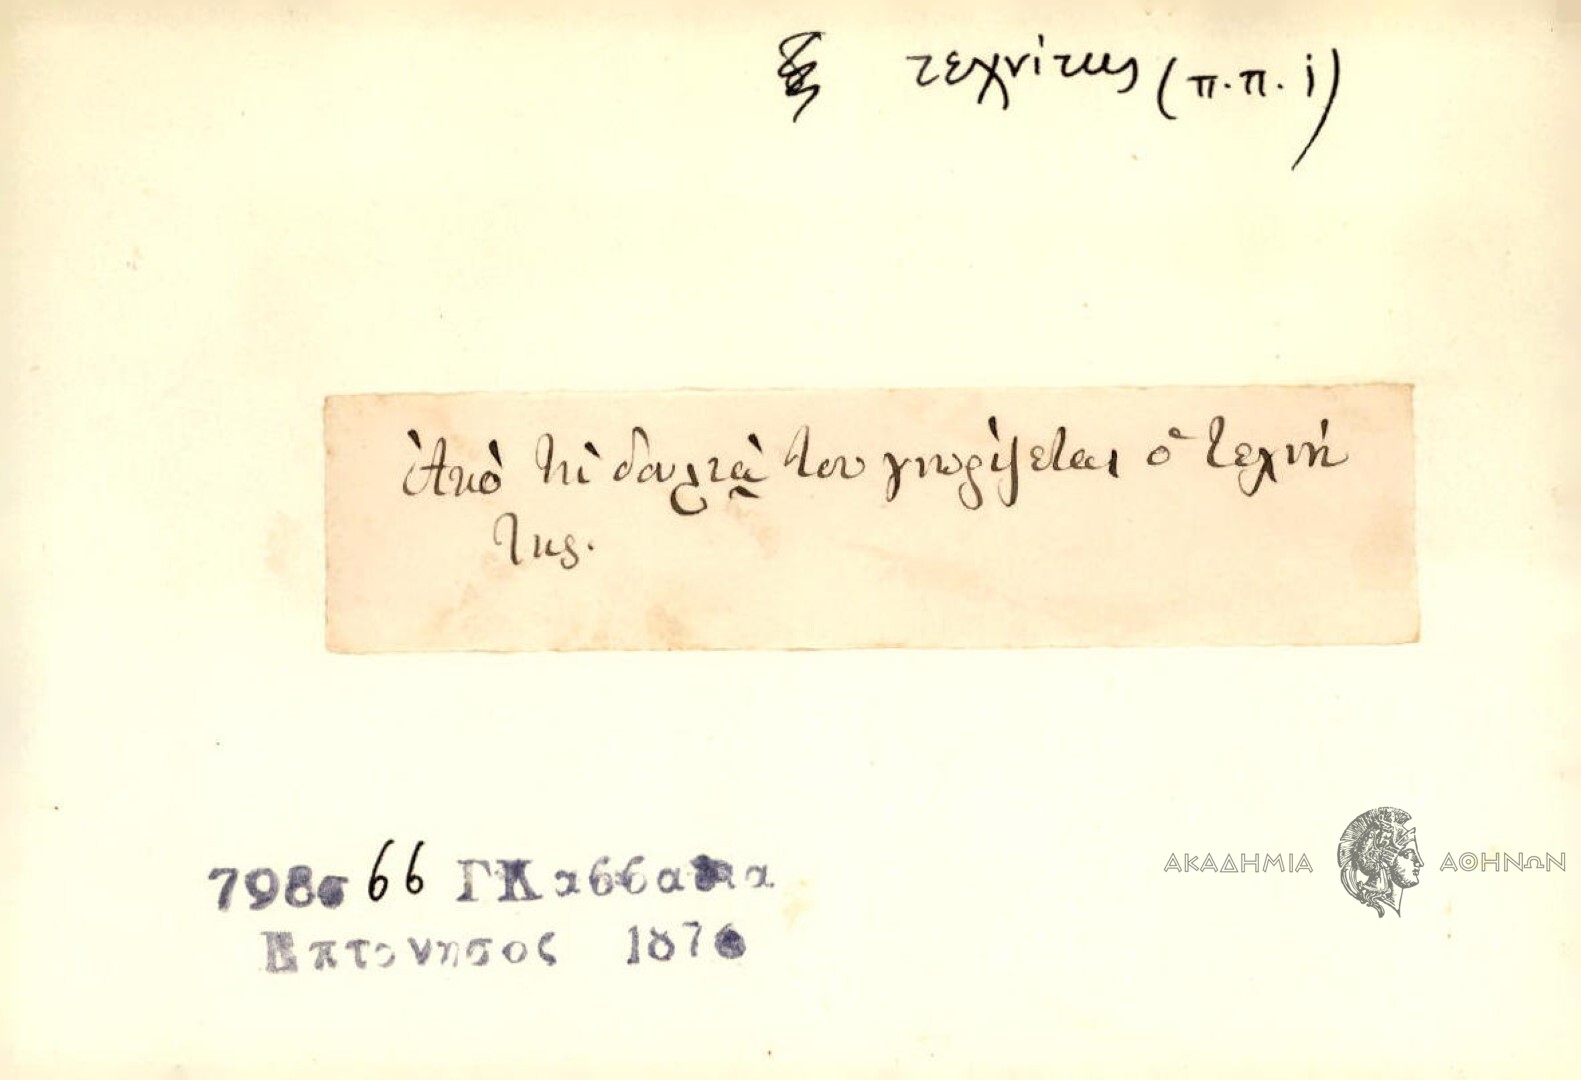 τεχνίτης (π.π. i)
Ἀπὸ τὴ δουλειὰ του γνωρίζεται ὁ τεχνί
της.
798 σ 66 ΓΚαββαδία
Επτάνησος 1876
ΑΚΑΔΗΜΙΑ ΑΘΗΝΩΝ